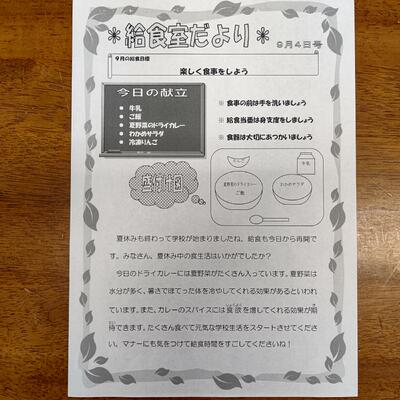 ＊給食室だより＊
９月４日号
９月の給食目標
楽しく食事をしよう
今日の献立
● 牛乳
● ご飯
● 夏野菜のドライカレー
● わかめサラダ
● 冷凍りんご
※ 食事の前は手を洗いましょう
※ 給食当番は身支度をしましょう
※ 食器は大切にあつかいましょう
盛付図
牛乳
夏野菜のドライカレー
ご飯
わかめサラダ
夏休みも終わって学校が始まりましたね。給食も今日から再開で
す。みなさん、夏休み中の食生活はいかがでしたか？
今日のドライカレーには夏野菜がたくさん入っています。夏野菜は
水分が多く、暑さでほてった体を冷やしてくれる効果があるといわれ
ています。また、カレーのスパイスには食欲を増してくれる効果が期
待できます。たくさん食べて元気な学校生活をスタートさせてくださ
い。マナーにも気をつけて給食時間をすごしてくださいね！